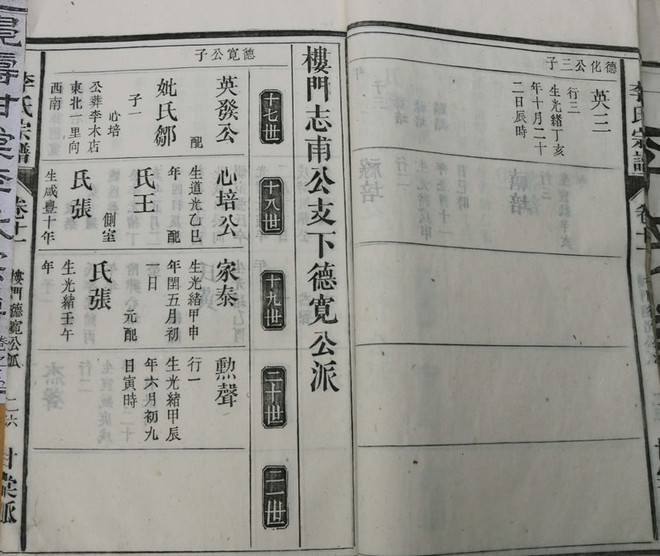 李氏宗譜
卷十一
德化公三子
英三
行三
生光緒丁亥
年十月二十
二日辰時
樓門志甫公支下德寬公派
十七世
十八世
十九世
二十世
二一世
德寬公子
英發公
配
妣氏鄒
子一
心培
公葬李木店
東北一里向
西南
心培公
生道光乙巳
年 配
氏王
側室
氏張
生咸豐十年
家泰
生光緒甲申
年閏五月初
一日 元配
氏張
生光緒壬午
年
勲聲
行一
生光緒甲辰
年六月初九
日寅時
李氏宗譜
卷十一
樓門德寬公派
二六
甘棠派